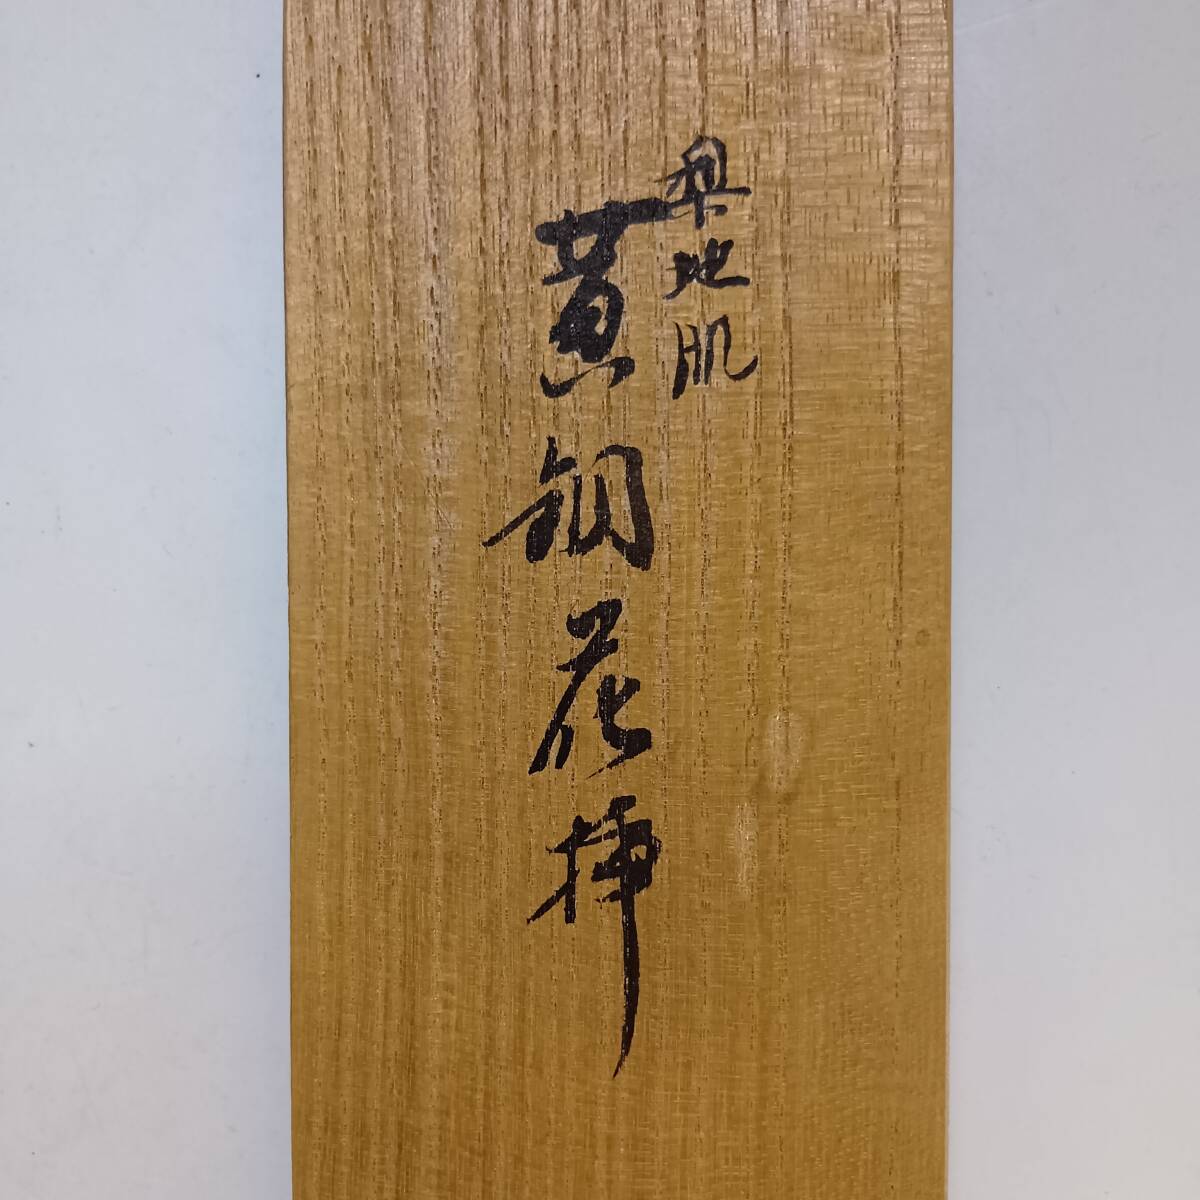 梨地肌
黄銅花挿